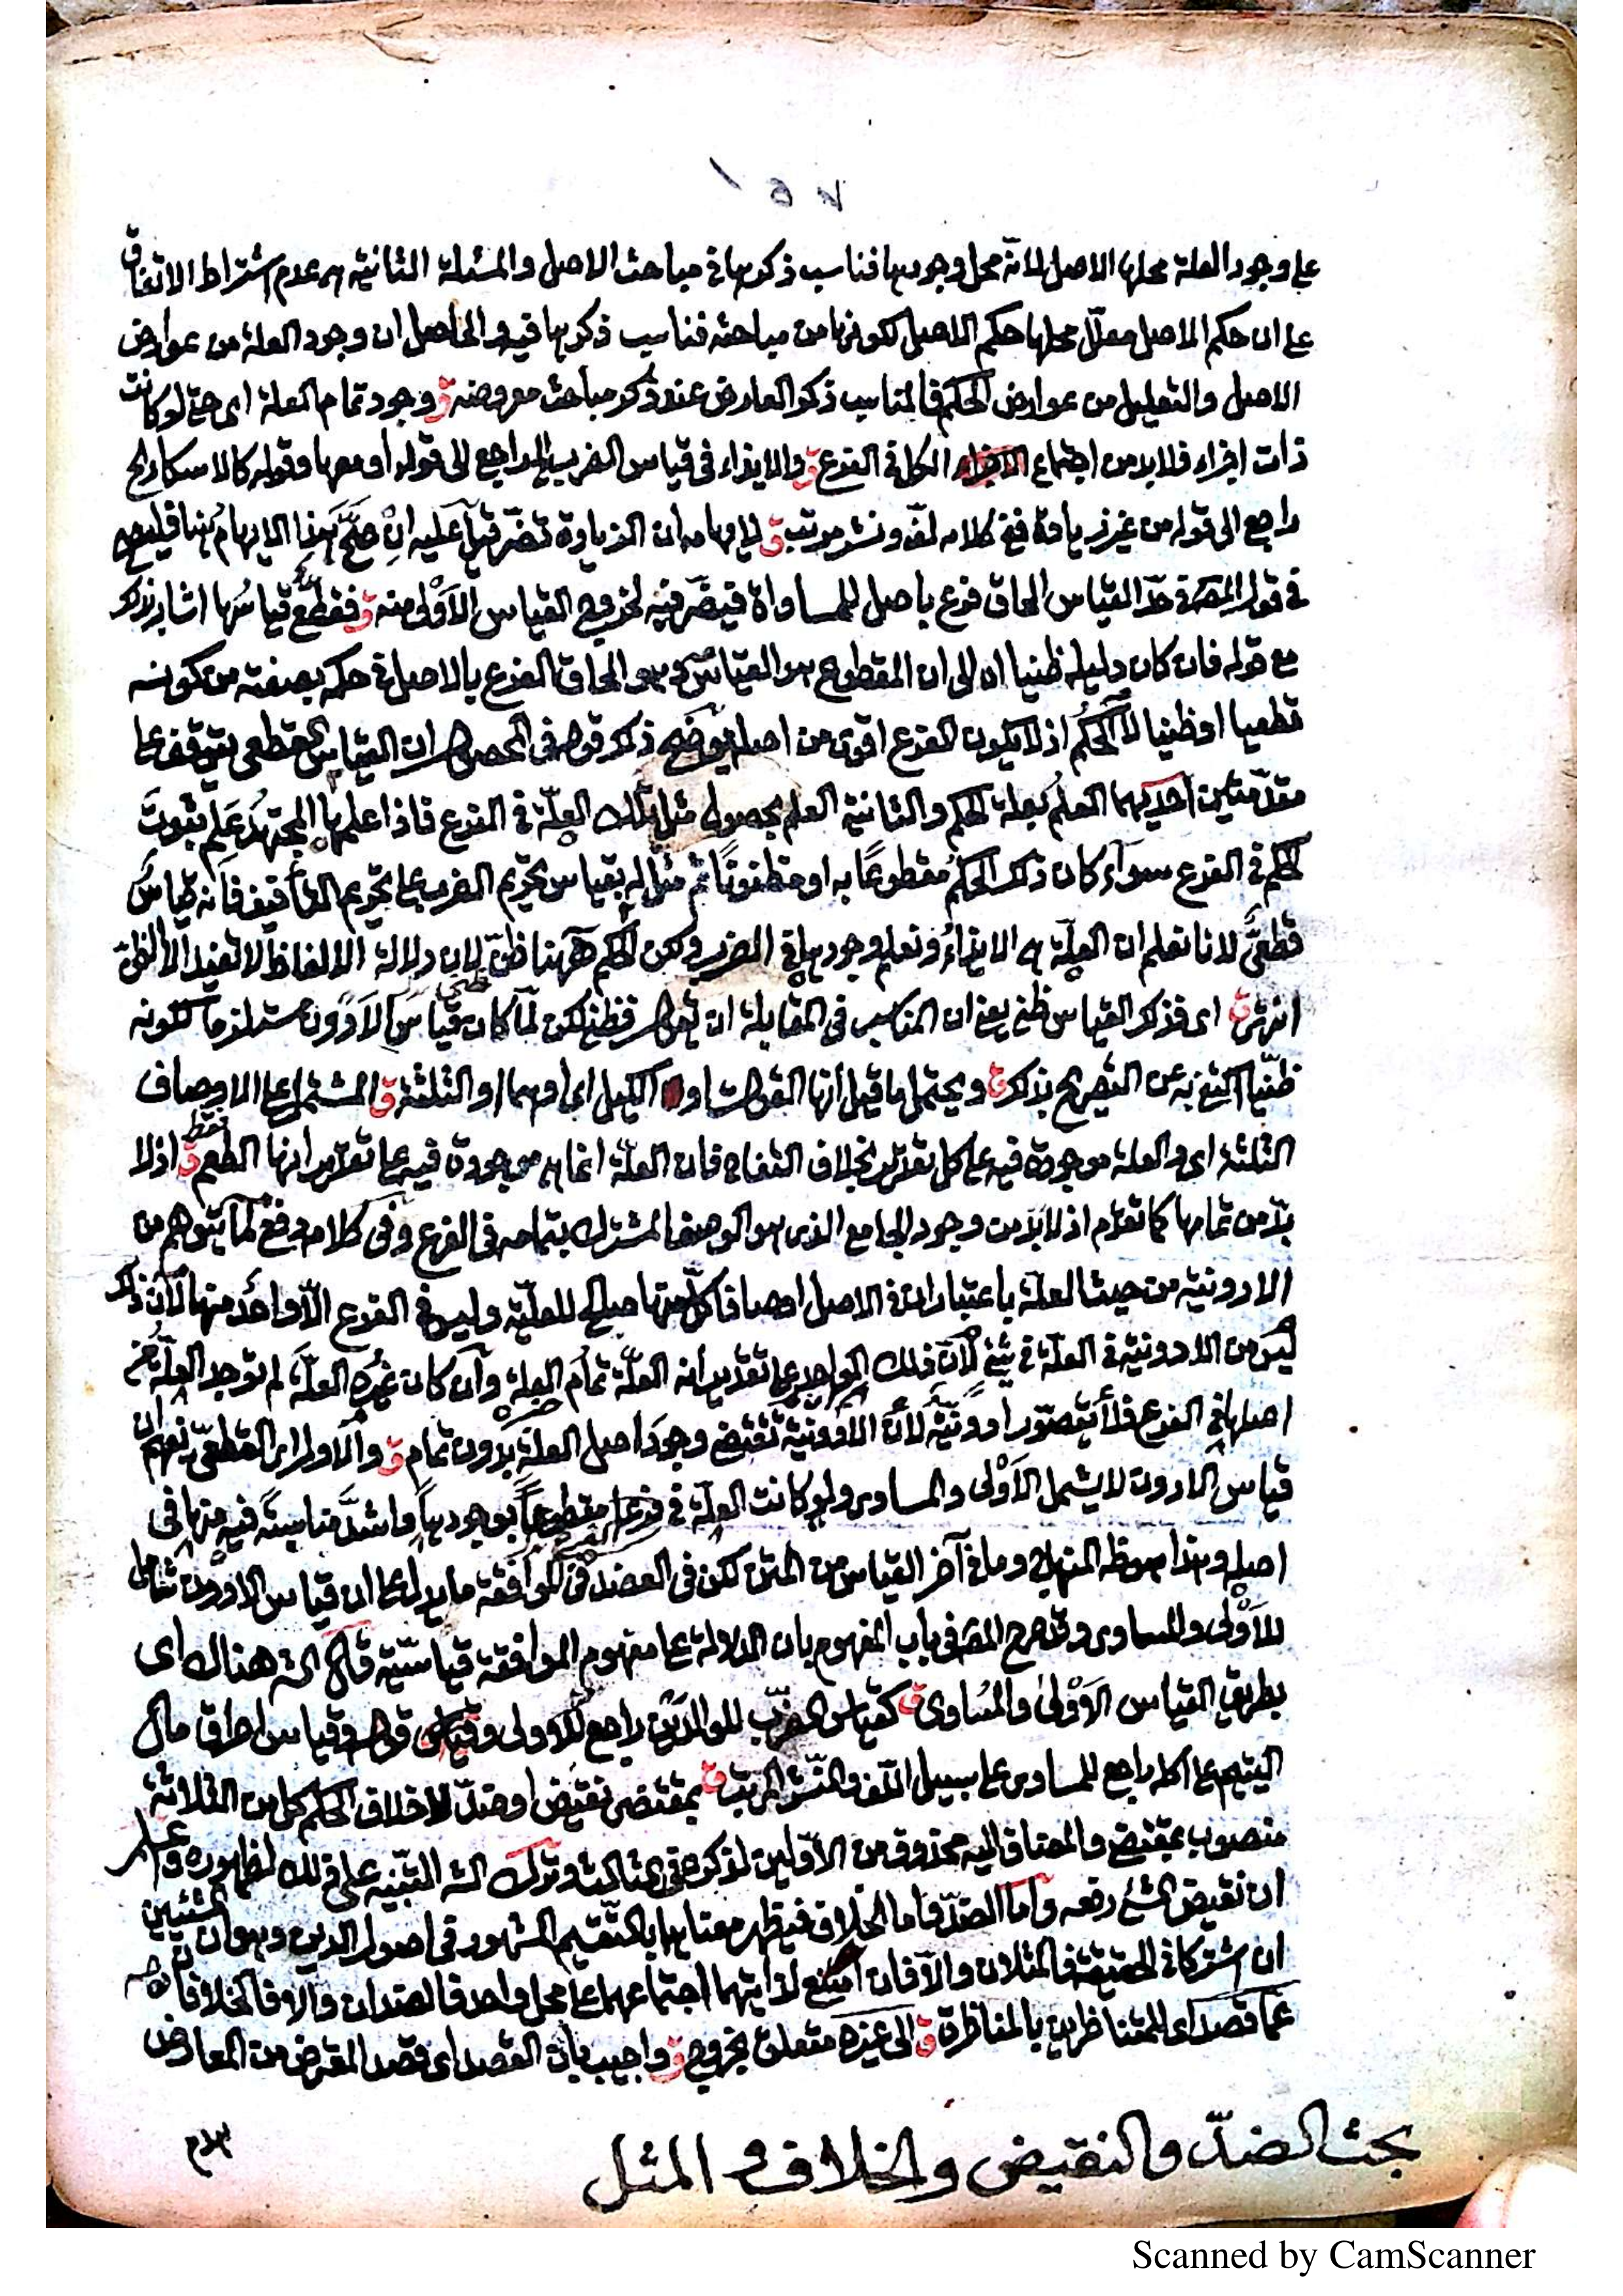 على وجود العلة محلها الاصل لانه محل وجودها فناسب ذكرها في مباحث الاصل والمسئلة الثانية هى عدم اشتراط الاتفاق
على ان حكم الاصل معلل محلها حكم الاصل لكونها من مباحثه فناسب ذكرها فيه والحاصل ان وجود العلة من عوارض
الاصل والتعليل من عوارض الحكم فالمناسب ذكر العارض عند ذكر مباحث معروضه ق وجود تمام العلة اى حتى لو كانت
ذات اجزاء فلا بد من اجتماع الكل في الفرع ق والايذاء في قياس الضرب الراجع الى قوله او معها وقوله كالاسكار
راجع الى قوله من غير زيادة ففى كلامه لف ونشر مرتب ق لايهامه ان الزيادة تضر قيل عليه ان صح هذا الايهام هنا فليصح
في قول المص في حد القياس الحاق فرع باصل للمساواة فيضر فيه لخروج القياس الاولى منه ق فقطعى قياسها اشار بذكر
مع قوله فان كان دليله ظنيا الى ان المقطوع هو القياس وهو الحاق الفرع بالاصل في حكمه بصفته من كونه
قطعيا او ظنيا لا الحكم اذ لا يكون الفرع اقوى من اصله يوضح ذلك قولهم في المحصول ان القياس القطعى يتوقف على
مقدمتين احديهما العلم بعلة الحكم والثانية العلم بحصول مثل تلك العلة في الفرع فاذا علمها المجتهد علم ثبوت
الحكم في الفرع سواء كان ذلك الحكم مقطوعا به او مظنونا ثم مثل له بقياس تحريم الضرب على تحريم التأفيف فانه قياس
قطعى لانا نعلم ان العلة هى الايذاء ونعلم وجودها في الضرب ولكن الحكم ههنا ظنى لان دلالة الالفاظ لا تفيد الا الظن
انتهى ق اى فذكر القياس ظنى يعنى ان المناسب في المقابلة ان يقول فظنى لكن لما كان قياس الادون مستلزما لكونه
ظنيا اكتفى به عن التصريح بذكر ق ويحتمل ما قيل انها القوت او الكيل اى او هما او الثلثة ق المشتمل على الاوصاف
الثلثة اى والعلة موجودة فيه على كل تقدير بخلاف التفاح فان العلة انما هى موجودة فيه على تقدير انها الطعم فقط ق اذ لا
بد من تمامها كما تقدم اذ لا بد من وجود الجامع الذى هو الوصف المشترك بتمامه في الفرع وفي كلامه دفع لما يتوهم من
الادونية من حيث العلة باعتبار ان في الاصل اوصافا كل منها صالح للعلية وليس في الفرع الا واحد منها لان ذلك
ليس من الادونية في العلة في شئ لان ذلك الواحد على تقدير انه العلة تمام العلة وان كان غيره العلة لم توجد العلة من
اصلها في الفرع فلا يتصور ادونية لان الادونية تقتضى وجود اصل العلة بدون تمام ق والاول اى القطعى يفهم ان
قياس الادون لا يشمل الاولى والمساوى ولو كانت العلة في فرعه مقطوعا بوجودها واشد مناسبة فيه منها في
اصله وهذا هو ظ المنهاج وما في آخر القياس من المتن لكن في العضد في الموافقة ما يدل على ان قياس الادون شامل
للاولى والمساوى وقد صرح المص في باب المفهوم بان الدلالة على مفهوم الموافقة قياسية قال الش هناك اى
بطريق القياس الاولى والمساوى ق كقياس الضرب للوالدين راجع للاولى وقوله وقياس احراق مال
اليتيم على اكله راجع للمساوى على سبيل اللف والنشر المرتب ق بمقتضى نقيض او ضد لا خلاف الحكم كل من الثلاثة
منصوب بمقتضى والمضاف اليه محذوف من الاولين لذكره في الثالث وترك الش التنبيه على ذلك لظهوره واعلم
ان نقيض الشئ رفعه واما الضد واما الخلاف فيظهر معناهما بالتقسيم المشهور في اصول الدين وهو ان الشيئين
ان اشتركا في الحقيقة فالمثلان والا فان امتنع لذاتيهما اجتماعهما في محل واحد فالضدان والا فالخلافان ق
عما قصد اى للمتناظرين بالمناظرة ق الى غيره متعلق بخروج ق واجيب بان القصد اى قصد المعترض من المعارض
بحث الضد والنقيض والخلاف و المثل
Scanned by CamScanner